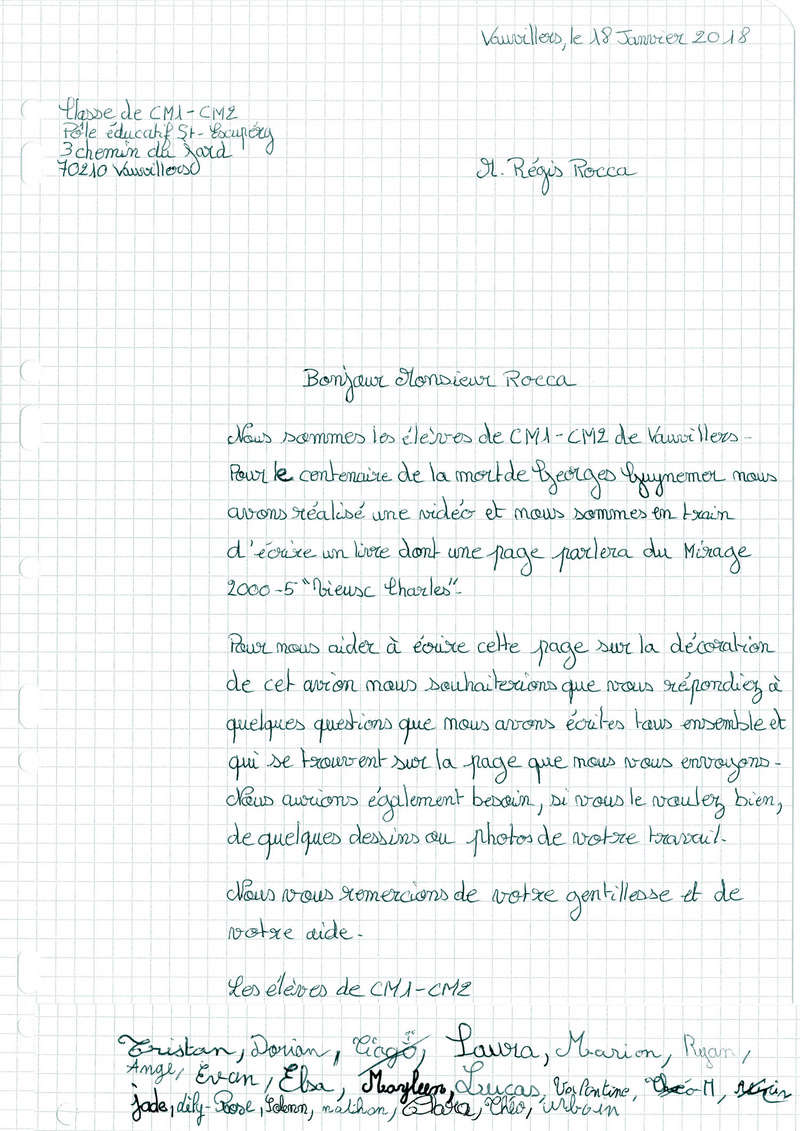 Vauvillers, le 18 Janvier 2018
Classe de CM1-CM2
Pôle éducatif St-Exupéry
3 chemin du Jard
70210 Vauvillers
M. Régis Rocca
Bonjour Monsieur Rocca
Nous sommes les élèves de CM1-CM2 de Vauvillers.
Pour le centenaire de la mort de Georges Guynemer nous
avons réalisé une vidéo et nous sommes en train
d'écrire un livre dont une page parlera du Mirage
2000-5 "Vieux Charles".
Pour nous aider à écrire cette page sur la décoration
de cet avion nous souhaiterions que vous répondiez à
quelques questions que nous avons écrites tous ensemble et
qui se trouvent sur la page que nous vous envoyons.
Nous aurions également besoin, si vous le voulez bien,
de quelques dessins ou photos de votre travail.
Nous vous remercions de votre gentillesse et de
votre aide.
Les élèves de CM1-CM2
Tristan, Dorian, Tiago, Laura, Marion, Ryan,
Ange, Evan, Elsa, Mayleen, Lucas, Valentine, Théo M,
jade, lily-Rose, Solenn, nathan, Clara, Théo, Urbain